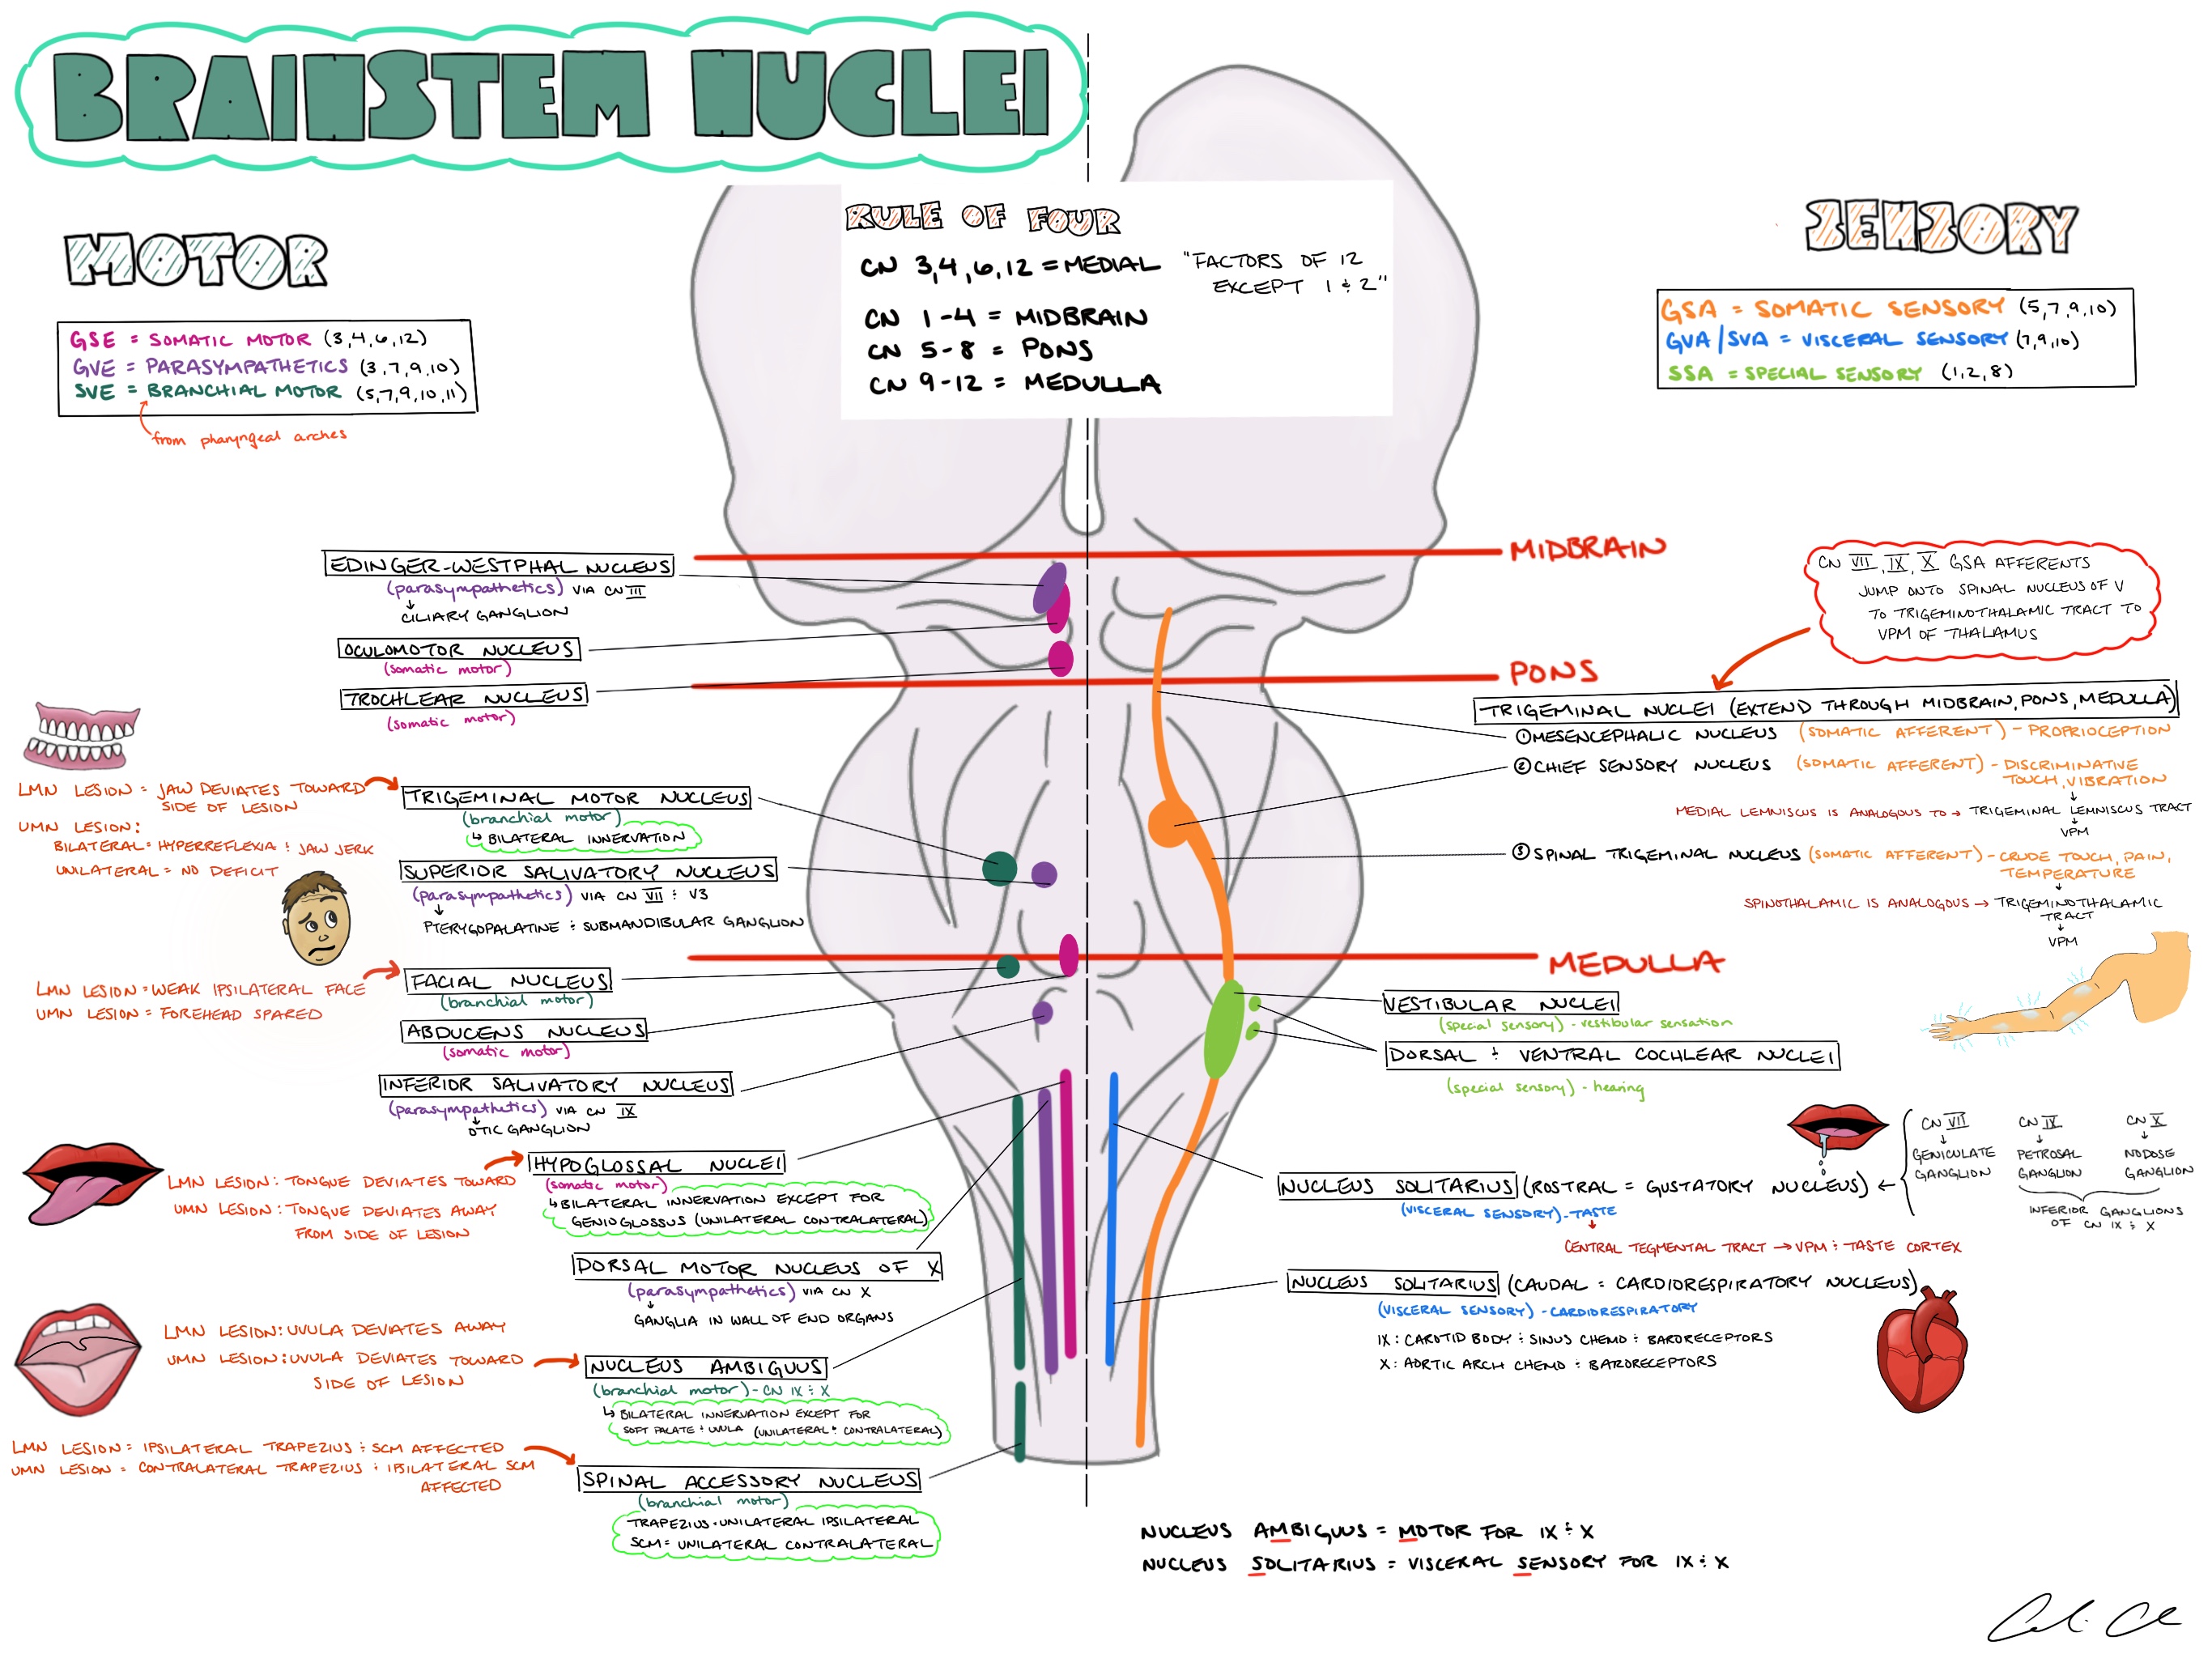 BRAINSTEM NUCLEI
MOTOR
GSE = SOMATIC MOTOR (3,4,6,12)
GVE = PARASYMPATHETICS (3,7,9,10)
SVE = BRANCHIAL MOTOR (5,7,9,10,11)
from pharyngeal arches
RULE OF FOUR
CN 3,4,6,12 = MEDIAL "FACTORS OF 12
EXCEPT 1 & 2"
CN 1-4 = MIDBRAIN
CN 5-8 = PONS
CN 9-12 = MEDULLA
SENSORY
GSA = SOMATIC SENSORY (5,7,9,10)
GVA/SVA = VISCERAL SENSORY (7,9,10)
SSA = SPECIAL SENSORY (1,2,8)
MIDBRAIN
PONS
MEDULLA
EDINGER-WESTPHAL NUCLEUS
(parasympathetics) VIA CN III
↓
CILIARY GANGLION
OCULOMOTOR NUCLEUS
(somatic motor)
TROCHLEAR NUCLEUS
(somatic motor)
LMN LESION = JAW DEVIATES TOWARD
SIDE OF LESION
UMN LESION:
BILATERAL = HYPERREFLEXIA & JAW JERK
UNILATERAL = NO DEFICIT
TRIGEMINAL MOTOR NUCLEUS
(branchial motor)
↳ BILATERAL INNERVATION
SUPERIOR SALIVATORY NUCLEUS
(parasympathetics) VIA CN VII & V3
↓
PTERYGOPALATINE & SUBMANDIBULAR GANGLION
LMN LESION = WEAK IPSILATERAL FACE
UMN LESION = FOREHEAD SPARED
FACIAL NUCLEUS
(branchial motor)
ABDUCENS NUCLEUS
(somatic motor)
INFERIOR SALIVATORY NUCLEUS
(parasympathetics) VIA CN IX
↓
OTIC GANGLION
LMN LESION: TONGUE DEVIATES TOWARD
UMN LESION: TONGUE DEVIATES AWAY
FROM SIDE OF LESION
HYPOGLOSSAL NUCLEI
(somatic motor)
↳ BILATERAL INNERVATION EXCEPT FOR
GENIOGLOSSUS (UNILATERAL CONTRALATERAL)
DORSAL MOTOR NUCLEUS OF X
(parasympathetics) VIA CN X
↓
GANGLIA IN WALL OF END ORGANS
LMN LESION: UVULA DEVIATES AWAY
UMN LESION: UVULA DEVIATES TOWARD
SIDE OF LESION
NUCLEUS AMBIGUUS
(branchial motor) - CN IX & X
↳ BILATERAL INNERVATION EXCEPT FOR
SOFT PALATE & UVULA (UNILATERAL & CONTRALATERAL)
LMN LESION = IPSILATERAL TRAPEZIUS & SCM AFFECTED
UMN LESION = CONTRALATERAL TRAPEZIUS & IPSILATERAL SCM
AFFECTED
SPINAL ACCESSORY NUCLEUS
(branchial motor)
TRAPEZIUS = UNILATERAL IPSILATERAL
SCM = UNILATERAL CONTRALATERAL
CN VII, IX, X GSA AFFERENTS
JUMP ONTO SPINAL NUCLEUS OF V
TO TRIGEMINOTHALAMIC TRACT TO
VPM OF THALAMUS
TRIGEMINAL NUCLEI (EXTEND THROUGH MIDBRAIN, PONS, MEDULLA)
① MESENCEPHALIC NUCLEUS (SOMATIC AFFERENT) - PROPRIOCEPTION
② CHIEF SENSORY NUCLEUS (SOMATIC AFFERENT) - DISCRIMINATIVE
TOUCH, VIBRATION
↓
MEDIAL LEMNISCUS IS ANALOGOUS TO → TRIGEMINAL LEMNISCUS TRACT
↓
VPM
③ SPINAL TRIGEMINAL NUCLEUS (SOMATIC AFFERENT) - CRUDE TOUCH, PAIN,
TEMPERATURE
↓
SPINOTHALAMIC IS ANALOGOUS → TRIGEMINOTHALAMIC
TRACT
↓
VPM
VESTIBULAR NUCLEI
(special sensory) - vestibular sensation
DORSAL & VENTRAL COCHLEAR NUCLEI
(special sensory) - hearing
CN VII CN IX CN X
↓ ↓ ↓
GENICULATE PETROSAL NODOSE
GANGLION GANGLION GANGLION
INFERIOR GANGLIONS
OF CN IX & X
NUCLEUS SOLITARIUS (ROSTRAL = GUSTATORY NUCLEUS) ←
(VISCERAL SENSORY) - TASTE
↓
CENTRAL TEGMENTAL TRACT → VPM & TASTE CORTEX
NUCLEUS SOLITARIUS (CAUDAL = CARDIORESPIRATORY NUCLEUS)
(VISCERAL SENSORY) - CARDIORESPIRATORY
IX: CAROTID BODY & SINUS CHEMO & BARORECEPTORS
X: AORTIC ARCH CHEMO & BARORECEPTORS
NUCLEUS AMBIGUUS = MOTOR FOR IX & X
NUCLEUS SOLITARIUS = VISCERAL SENSORY FOR IX & X